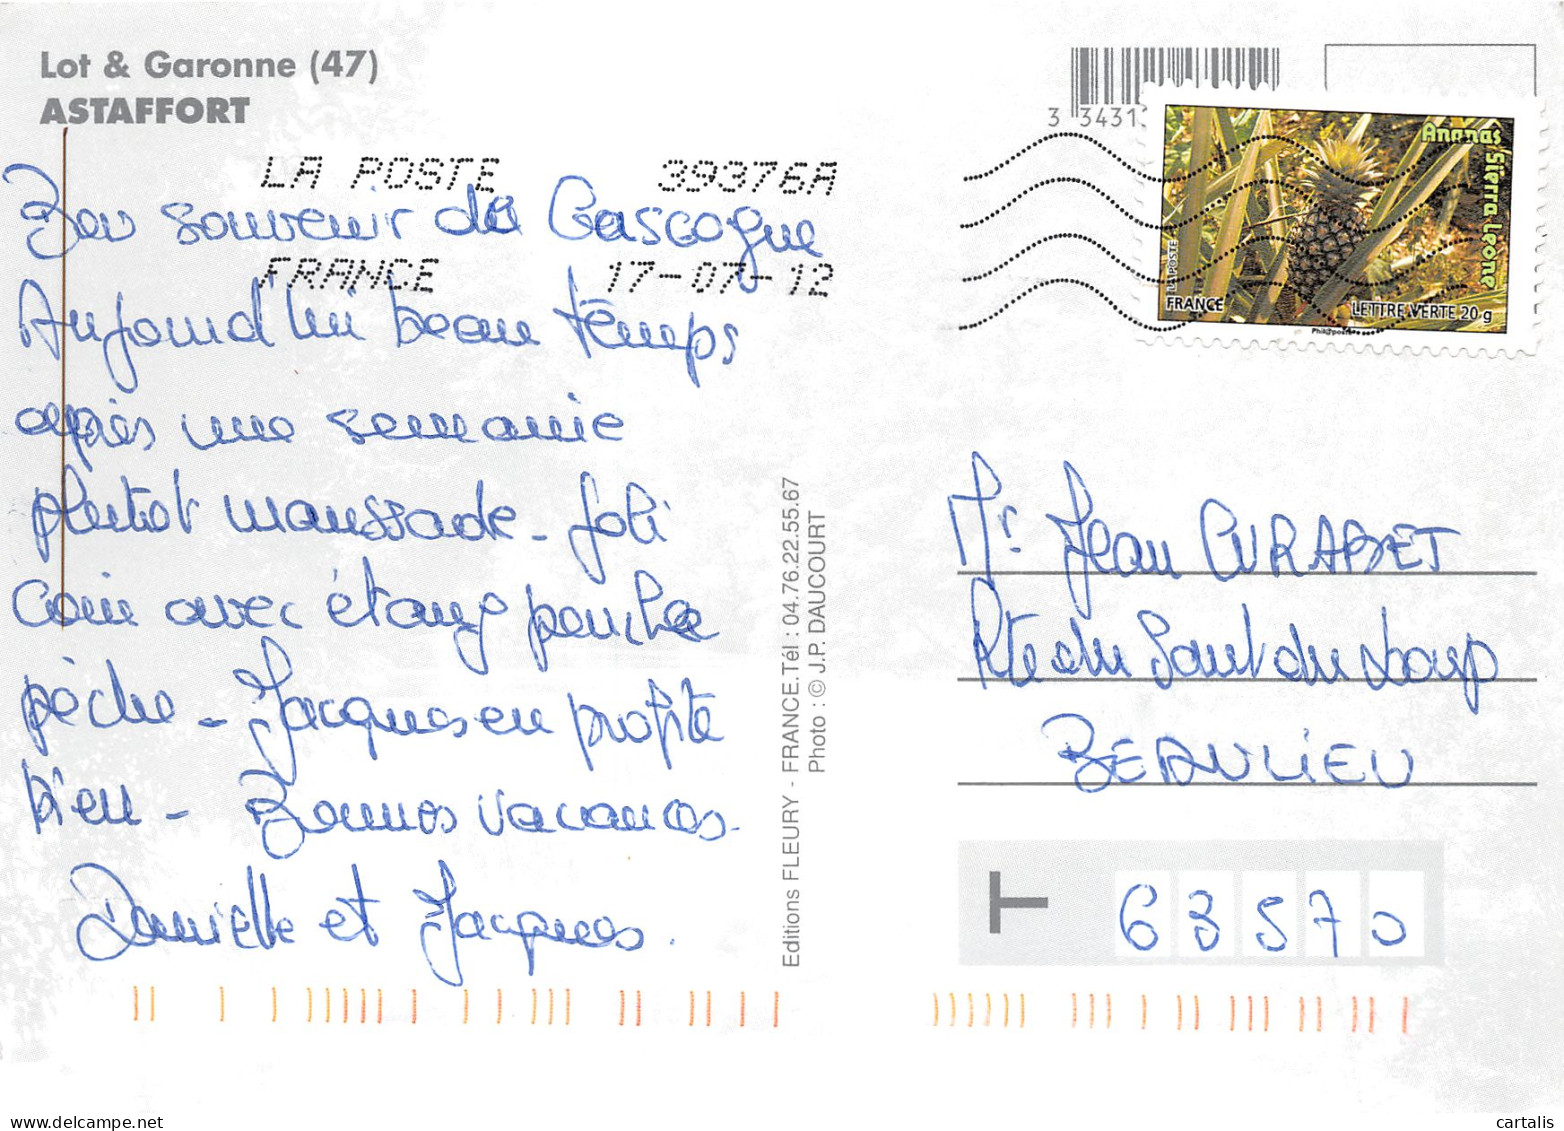 Lot & Garonne (47)
ASTAFFORT
LA POSTE 39376A
FRANCE 17-07-12
Bon souvenir de Gascogne
Aujourd'hui beau temps
après une semaine
plutot maussade - Joli
coin avec étang pour la
pèche - Jacques en profite
bien - Bonnes vacances.
Danielle et Jacques.
Editions FLEURY - FRANCE.Tél : 04.76.22.55.67
Photo : © J.P. DAUCOURT
3 3431
Ananas Sierra Leone
LA POSTE
FRANCE
LETTRE VERTE 20 g
Phil@poste
Mr Jean CURABET
Rte du Saut du Loup
BEAULIEU
T 63570
cartalis